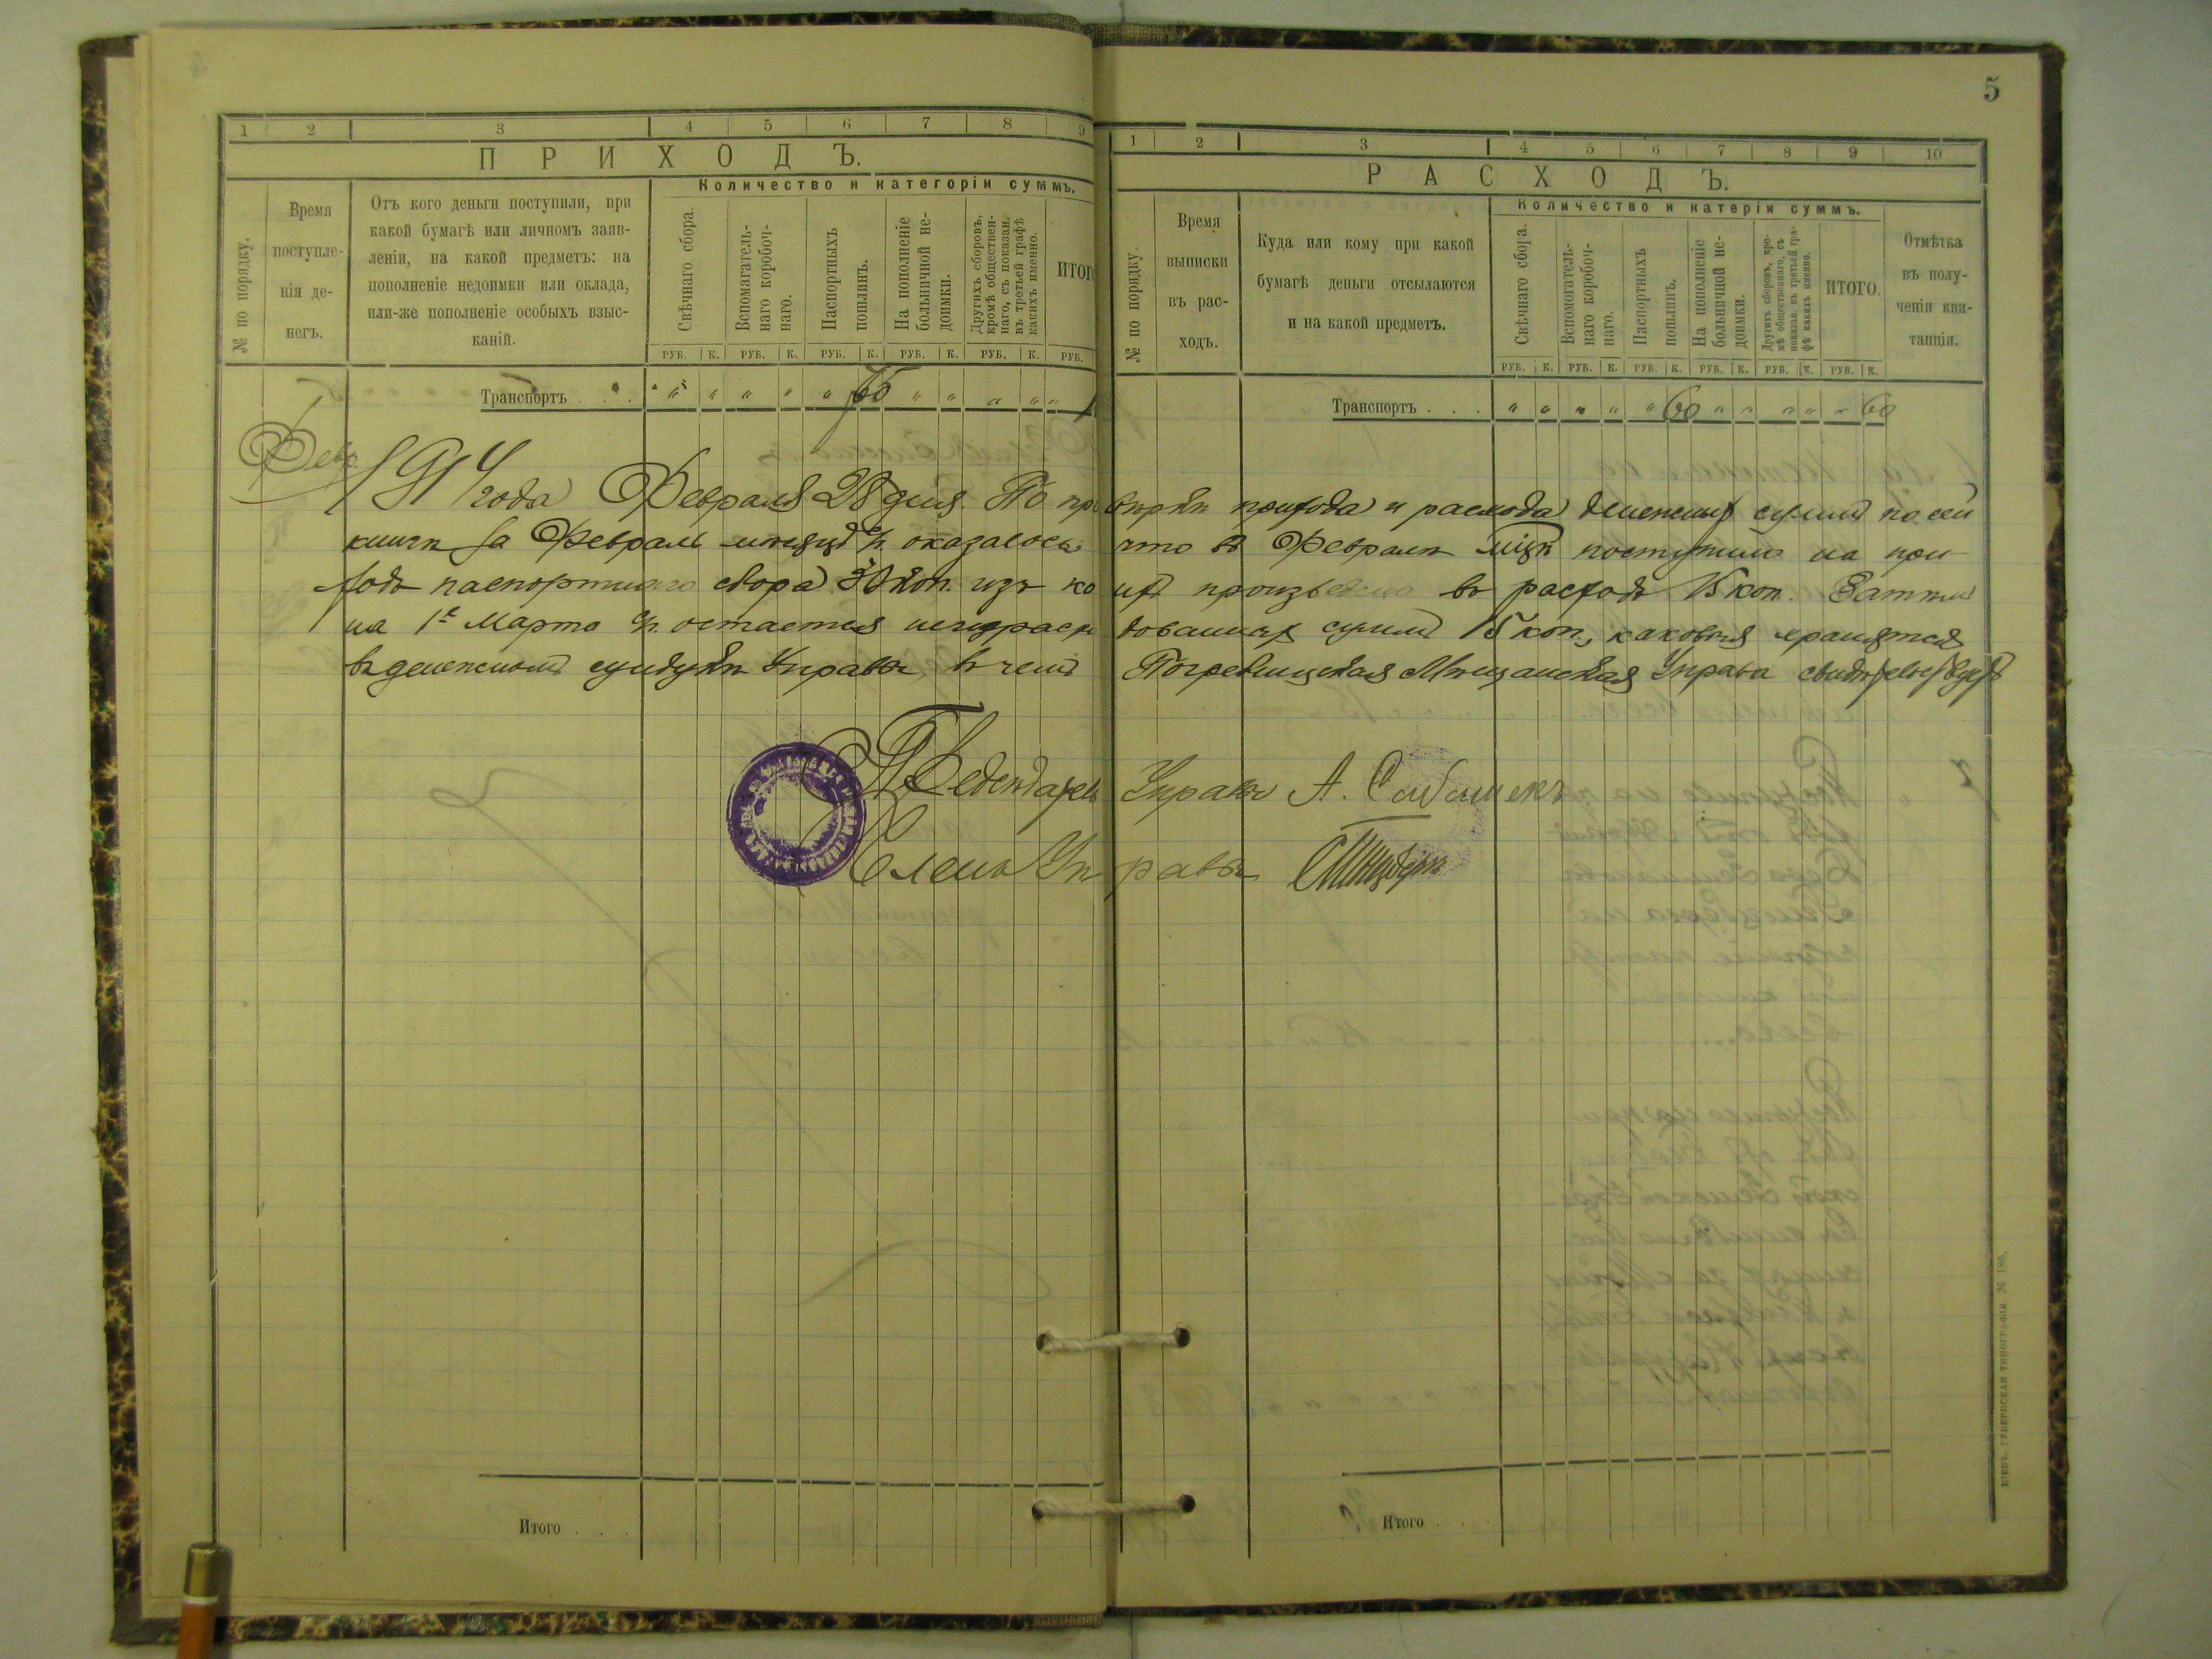 5
1 2 3 4 5 6 7 8 9
ПРИХОДЪ.
Количество и категоріи суммъ.
№ по порядку.
Время
поступле-
нія де-
негъ.
Отъ кого деньги поступили, при
какой бумагѣ или личномъ заяв-
леніи, на какой предметъ: на
пополненіе недоимки или оклада,
или-же пополненіе особыхъ взыс-
каній.
Свѣчнаго сбора.
Вспомагатель-
наго коробоч-
наго.
Паспортныхъ
пошлинъ.
На пополненіе
больничной не-
доимки.
Другихъ сборовъ,
кромѣ обществен-
наго, съ показан.
въ третьей графѣ
какихъ именно.
ИТОГ
РУБ. К. РУБ. К. РУБ. К. РУБ. К. РУБ. К. РУБ.
Транспортъ . . . " " " " " 75 " " " " "
1 2 3 4 5 6 7 8 9 10
РАСХОДЪ.
Количество и катеріи суммъ.
№ по порядку
Время
выписки
въ рас-
ходъ.
Куда или кому при какой
бумагѣ деньги отсылаются
и на какой предметъ.
Свѣчнаго сбора.
Вспомогатель-
наго коробоч-
наго.
Паспортныхъ
пошлинъ.
На пополненіе
больничной не-
доимки.
Другихъ сборовъ, кро-
мѣ общественнаго, съ
показан. въ третьей гра-
фѣ какихъ именно.
ИТОГО.
Отмѣтка
въ полу-
ченіи кви-
танціи.
РУБ. К. РУБ. К. РУБ. К. РУБ. К. РУБ. К. РУБ. К.
Транспортъ . . . " " " " " 60 " " " " " 60
Февр
1914 года Февраля 28 дня. По провѣркѣ прихода и расхода денежныхъ суммъ по сей
книгѣ за Февраль мѣсяцъ с/г. оказалось что въ Февралѣ м‑цѣ поступило на при
ходъ паспортнаго сбора 30 коп. изъ коихъ произведено въ расходъ 15 коп. Затѣмъ
на 1е Марта с/г. остается неизрасходованныхъ суммъ 15 коп., каковыя хранятся
въ денежномъ сундукѣ Управы, въ чемъ Погребищская Мѣщанская Управа свидѣтельствуетъ
Управы А.
Членъ Управы
Итого . . .
Итого . . .
КІЕВЪ. ГУБЕРНСКАЯ ТИПОГРАФІЯ № 186.